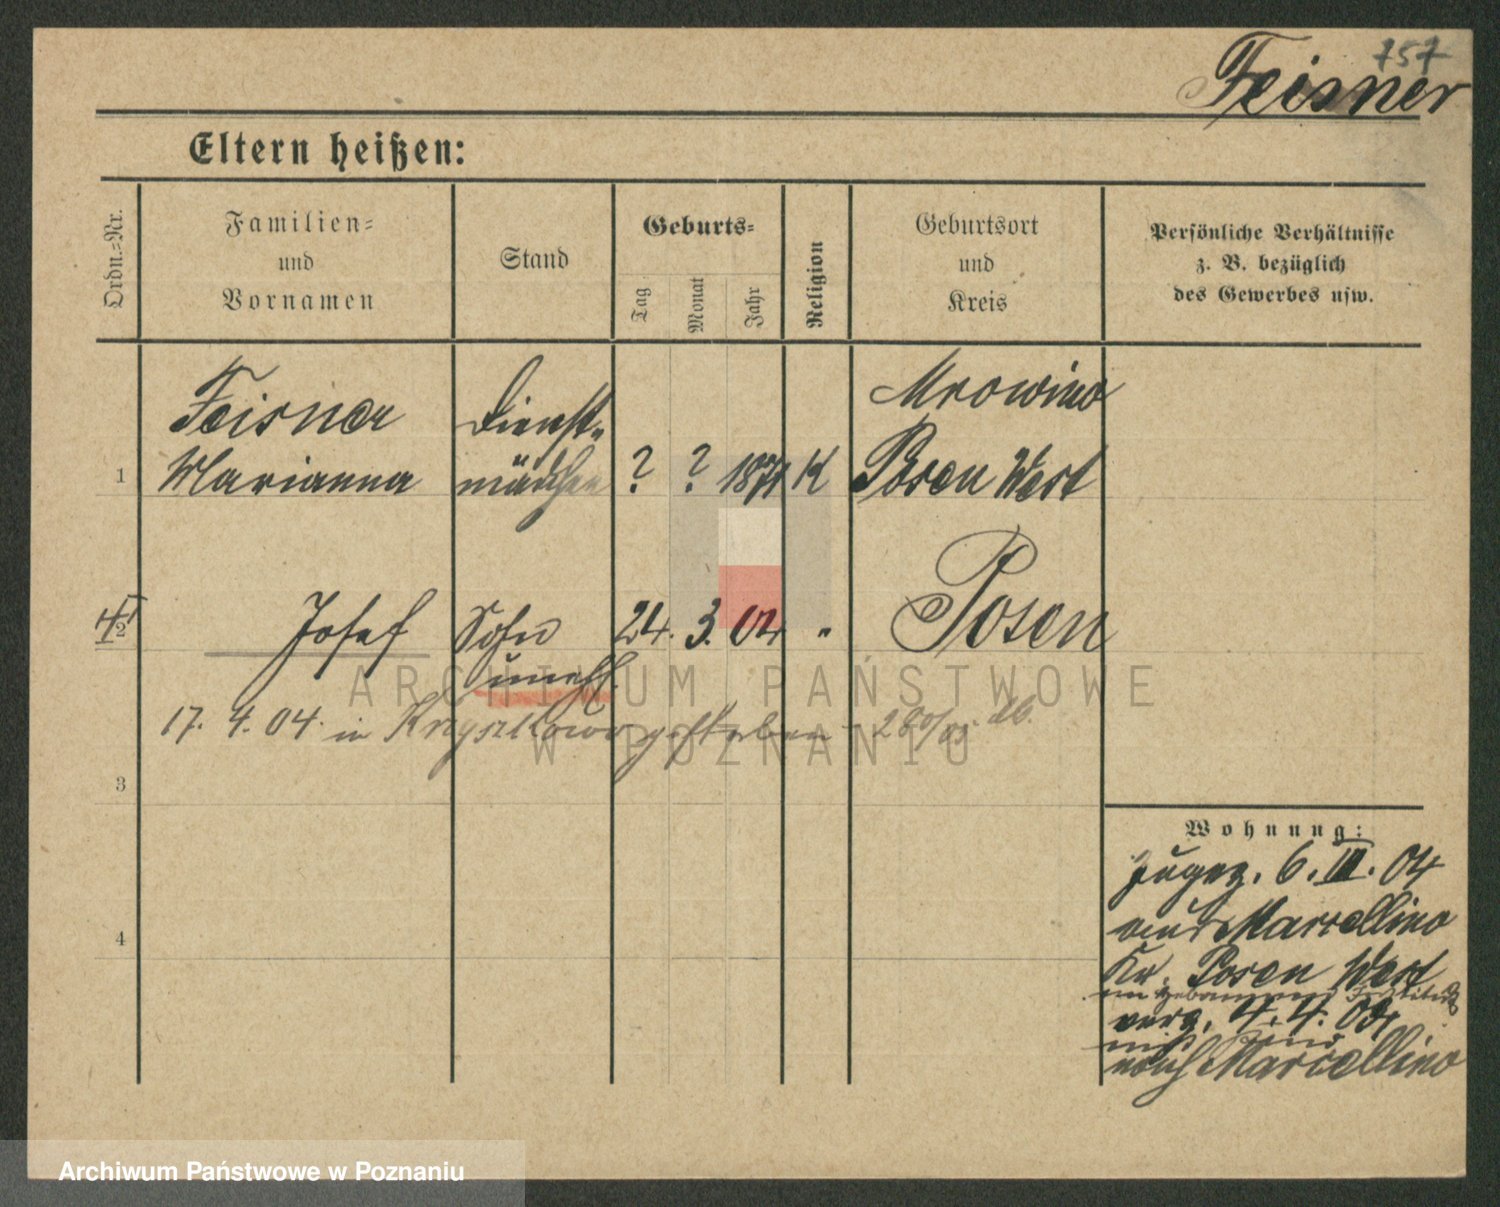 757
Feisner
Eltern heißen:
Ordn.=Nr.
Familien=
und
Vornamen
Stand
Geburts=
Tag
Monat
Jahr
Religion
Geburtsort
und
Kreis
Persönliche Verhältnisse
z. B. bezüglich
des Gewerbes usw.
Feisner Dienst- Mrowino
1 Marianna mädchen ? ? 1871 K Posen West
2 Josef Sohn 24. 3. 04 " Posen
unehl.
17. 4. 04. in Krzyszkowo gestorben 280/05
3
4
Wohnung:
zugez. 6. III. 04
aus Marcellino
Kr. Posen West
im Hebammen Institut
verz. 4. 4. 04
mit Kind
nach Marcellino
ARCHIWUM PAŃSTWOWE
W POZNANIU
Archiwum Państwowe w Poznaniu